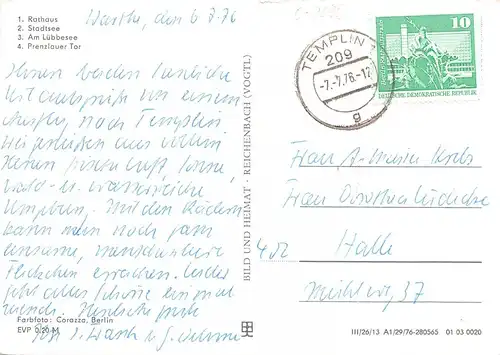 1. Rathaus
2. Stadtsee
3. Am Lübbesee
4. Prenzlauer Tor
Warthe, den 6.7.76
Ihnen beiden herzliche
Urlaubsgrüße von einem
Ausflug nach Templin
frische Luft, Sonne,
Wald- u. wasserreiche
Umgebung. Mit den Rädern
kann man noch ganz
einsame, menschenleere
Fleckchen erreichen. Leider
geht alles Schöne einmal
zu Ende. Herzliche Grüße
Farbfoto: Corazza, Berlin
EVP 0,20 M
BILD UND HEIMAT · REICHENBACH (VOGTL)
TEMPLIN 1
209
-7.-7.76.-17
g
10
DEUTSCHE DEMOKRATISCHE REPUBLIK
Frau
Frau Dorothea
402 Halle
37
III/26/13 A1/29/76-280565 01 03 0020